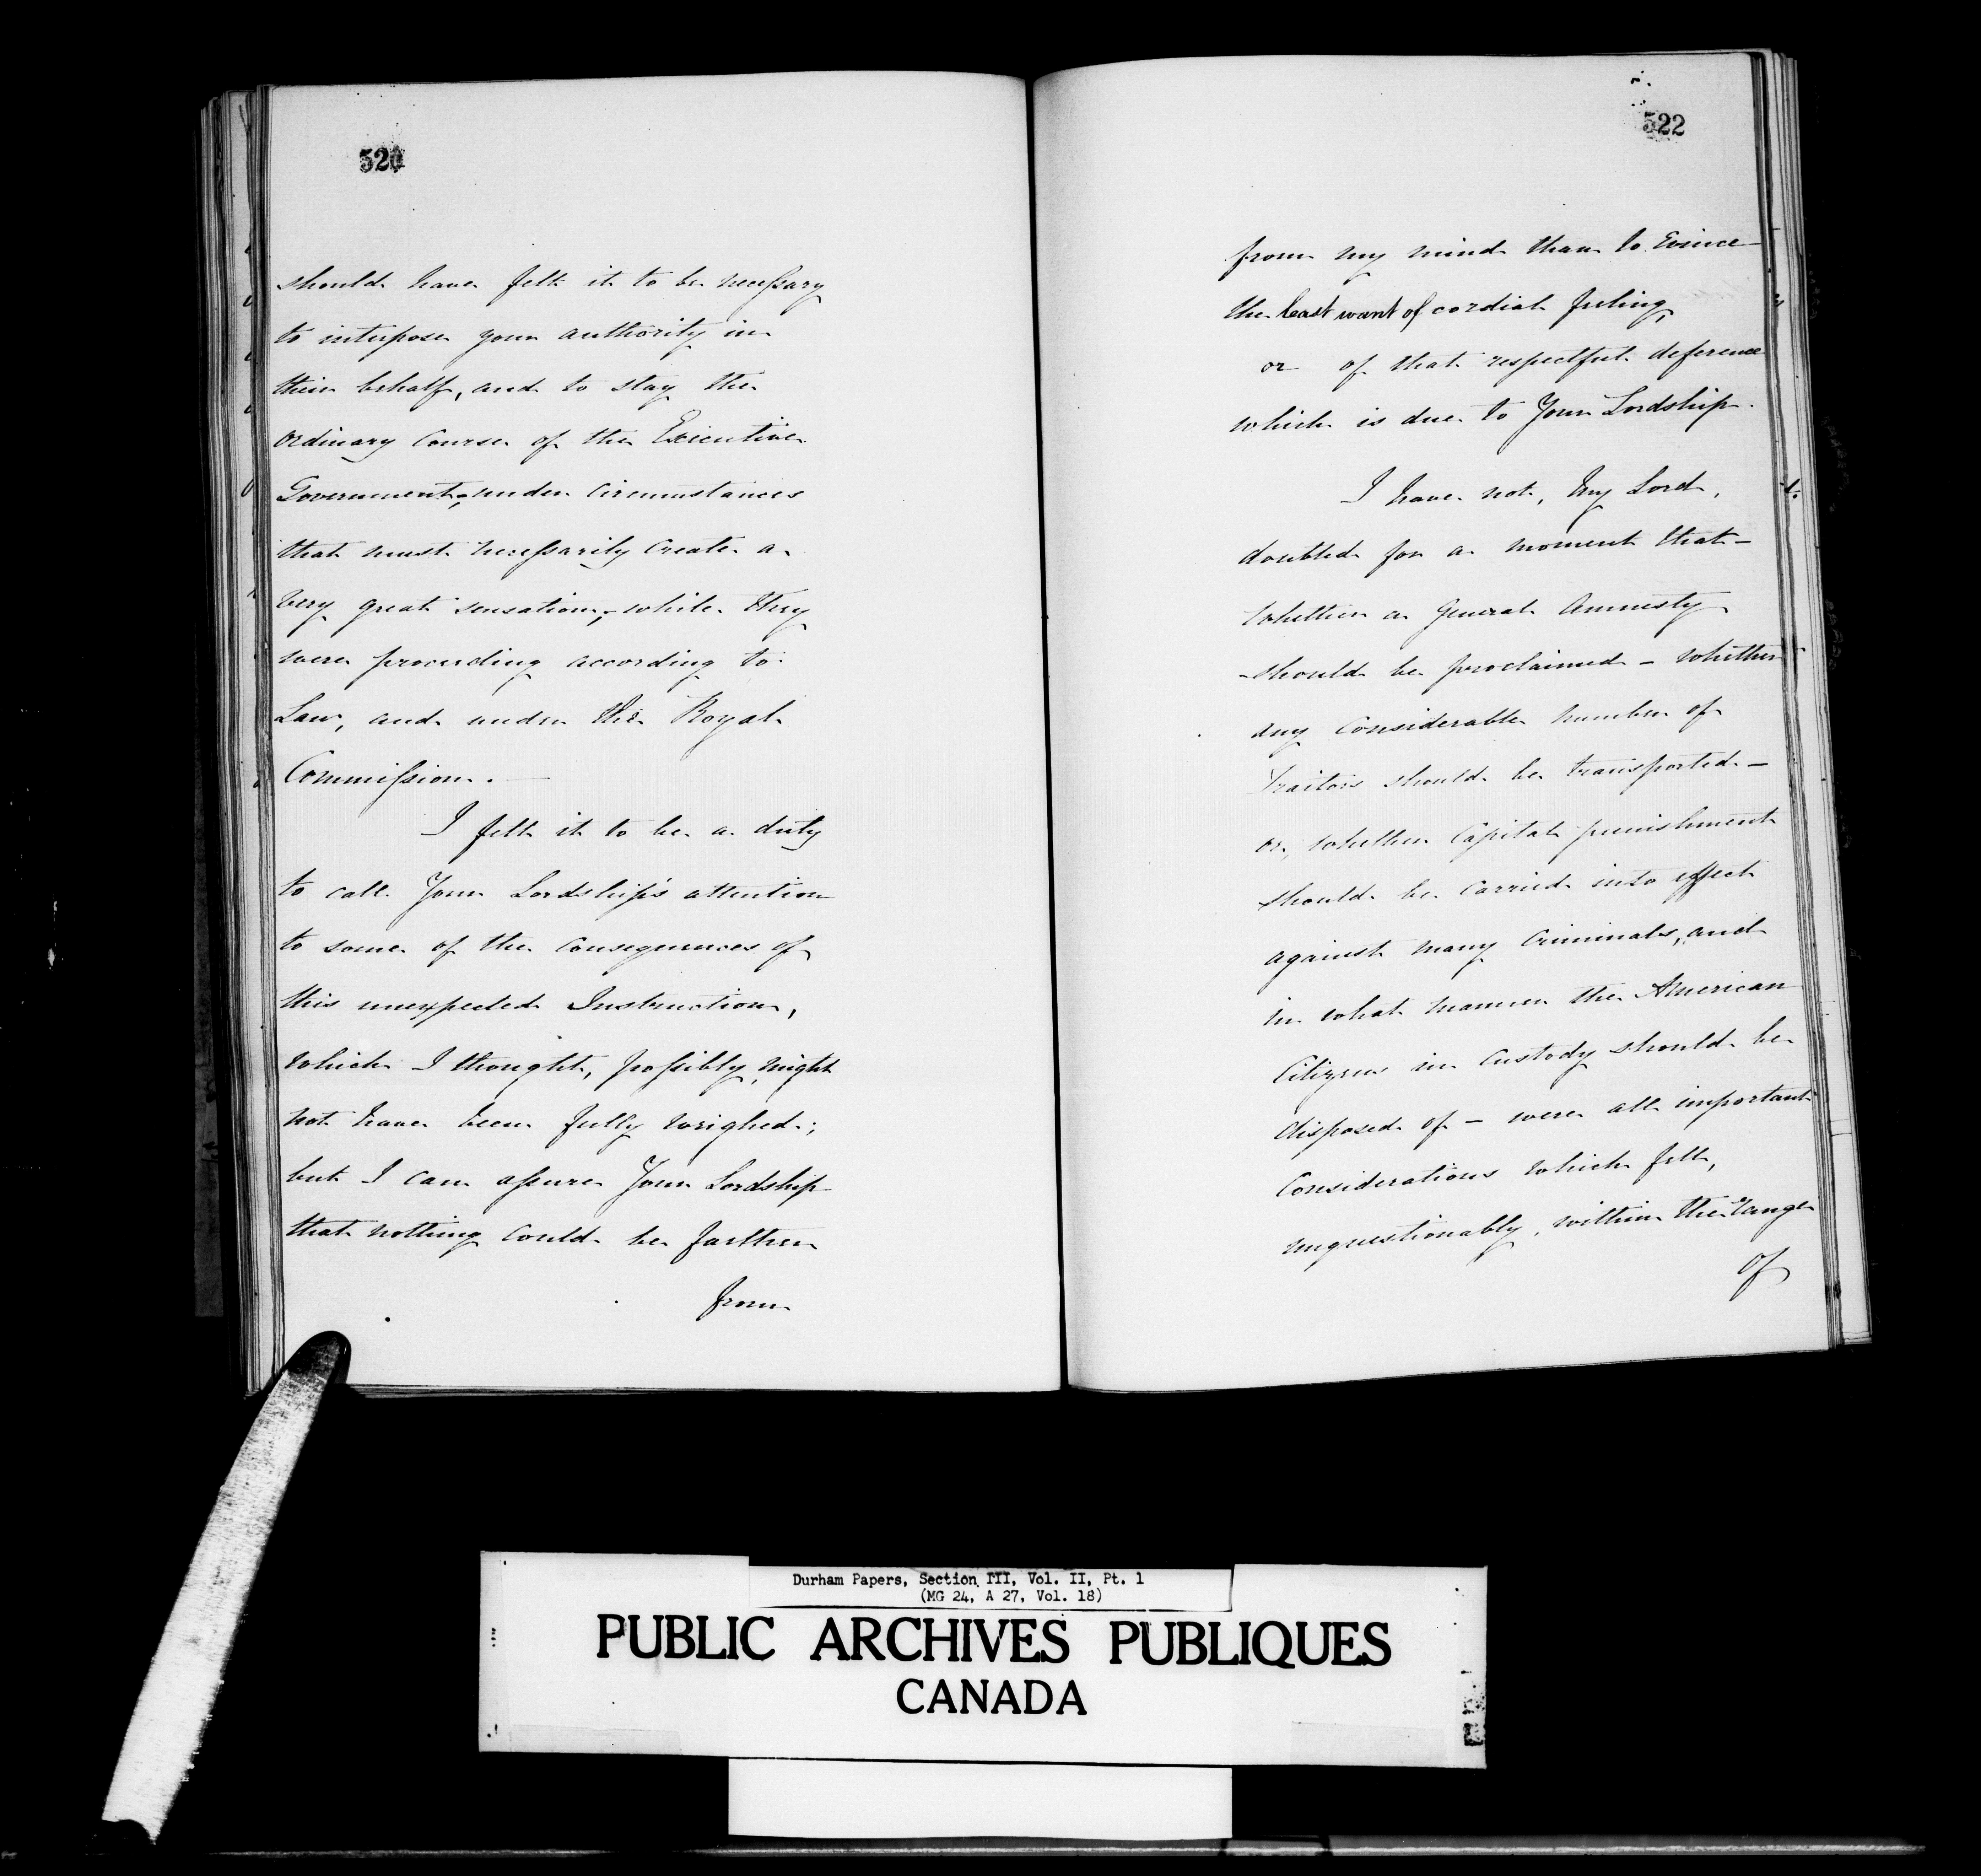 520
should have felt it to be necessary
to interpose your authority in
their behalf, and to stay the
ordinary Course of the Executive
Government, under Circumstances
that must necessarily Create a
very great sensation, while they
were proceeding according to
Law, and under the Royal
Commission. —
I felt it to be a duty
to call Your Lordship's attention
to some of the Consequences of
this unexpected Instruction,
which I thought, possibly, might
not have been fully weighed;
but I can assure Your Lordship
that nothing could be farther
from
522
from my mind than to Evince
the least want of cordial feeling,
or of that respectful deference
which is due to Your Lordship.
I have not, My Lord,
doubted for a moment that —
whether a General Amnesty
should be proclaimed — whether
any Considerable number of
Traitors should be transported —
or, whether Capital punishment
should be Carried into effect
against many Criminals, and
in what manner the American
Citizens in Custody should be
disposed of — were all important
Considerations which fell,
unquestionably, within the range
of
Durham Papers, Section III, Vol. II, Pt. 1
(MG 24, A 27, Vol. 18)
PUBLIC ARCHIVES PUBLIQUES
CANADA